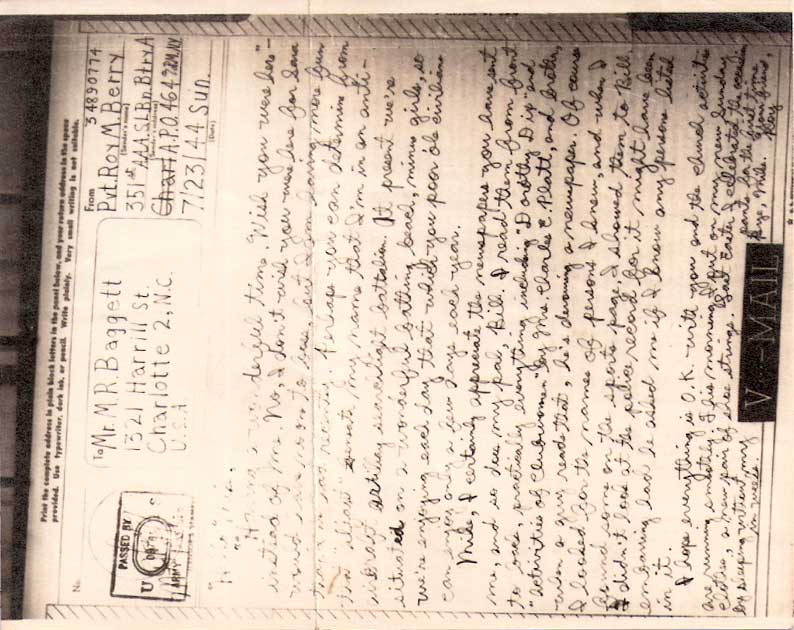 Print the complete address in plain block letters in the panel below, and your return address in the space
provided. Use typewriter, dark ink, or pencil. Write plainly. Very small writing is not suitable.
No.
PASSED BY
U
ARMY
To Mr. M.R. Baggett
1321 Harrill St.
Charlotte 2, N.C.
U.S.A
From
Pvt. Roy M. Berry 34890774
(Sender's name)
351st AAA. SL. Bn. Btry A
(Sender's address)
A.P.O. 464 % P.M., N.Y.
7/23/44 Sun.
(Date)
Having a wonderful time. Wish you were here"-
instead of me. No, I don't wish you were here for Sara
would have no one to love, but I am having more fun
than I've had recently. Perhaps you can determine from
my name that I'm in an anti-
aircraft artillery searchlight battalion. At present we're
situated on a wonderful bathing beach, minus girls, so
we're enjoying each day that which you poor ole civilians
can enjoy only a few days each year.
Mike, I certainly appreciate the newspapers you have sent
me, and so does my pal, Bill. I read them from front
to back, practically everything, including "Dorothy Dix" and
"activities of Clubwomen" by Mrs. Charles C. Platt, and brother,
when a guy reads that, he's devouring a newspaper. Of course
I looked for the names of persons I knew, and when I
found some on the sports page, I showed them to Bill.
I didn't look at the police record for it might have been
embarrassing had he asked me if I knew any persons listed
in it.
I hope everything is O.K. with you and the church activities
are running smoothly. This morning I put on my new Sunday
clothes, a new pair of shoe strings. Last Easter I celebrated the occasion
by sleeping without my pants for the first time
in weeks. Bye Mike. Your friend,
Roy
V···—MAIL